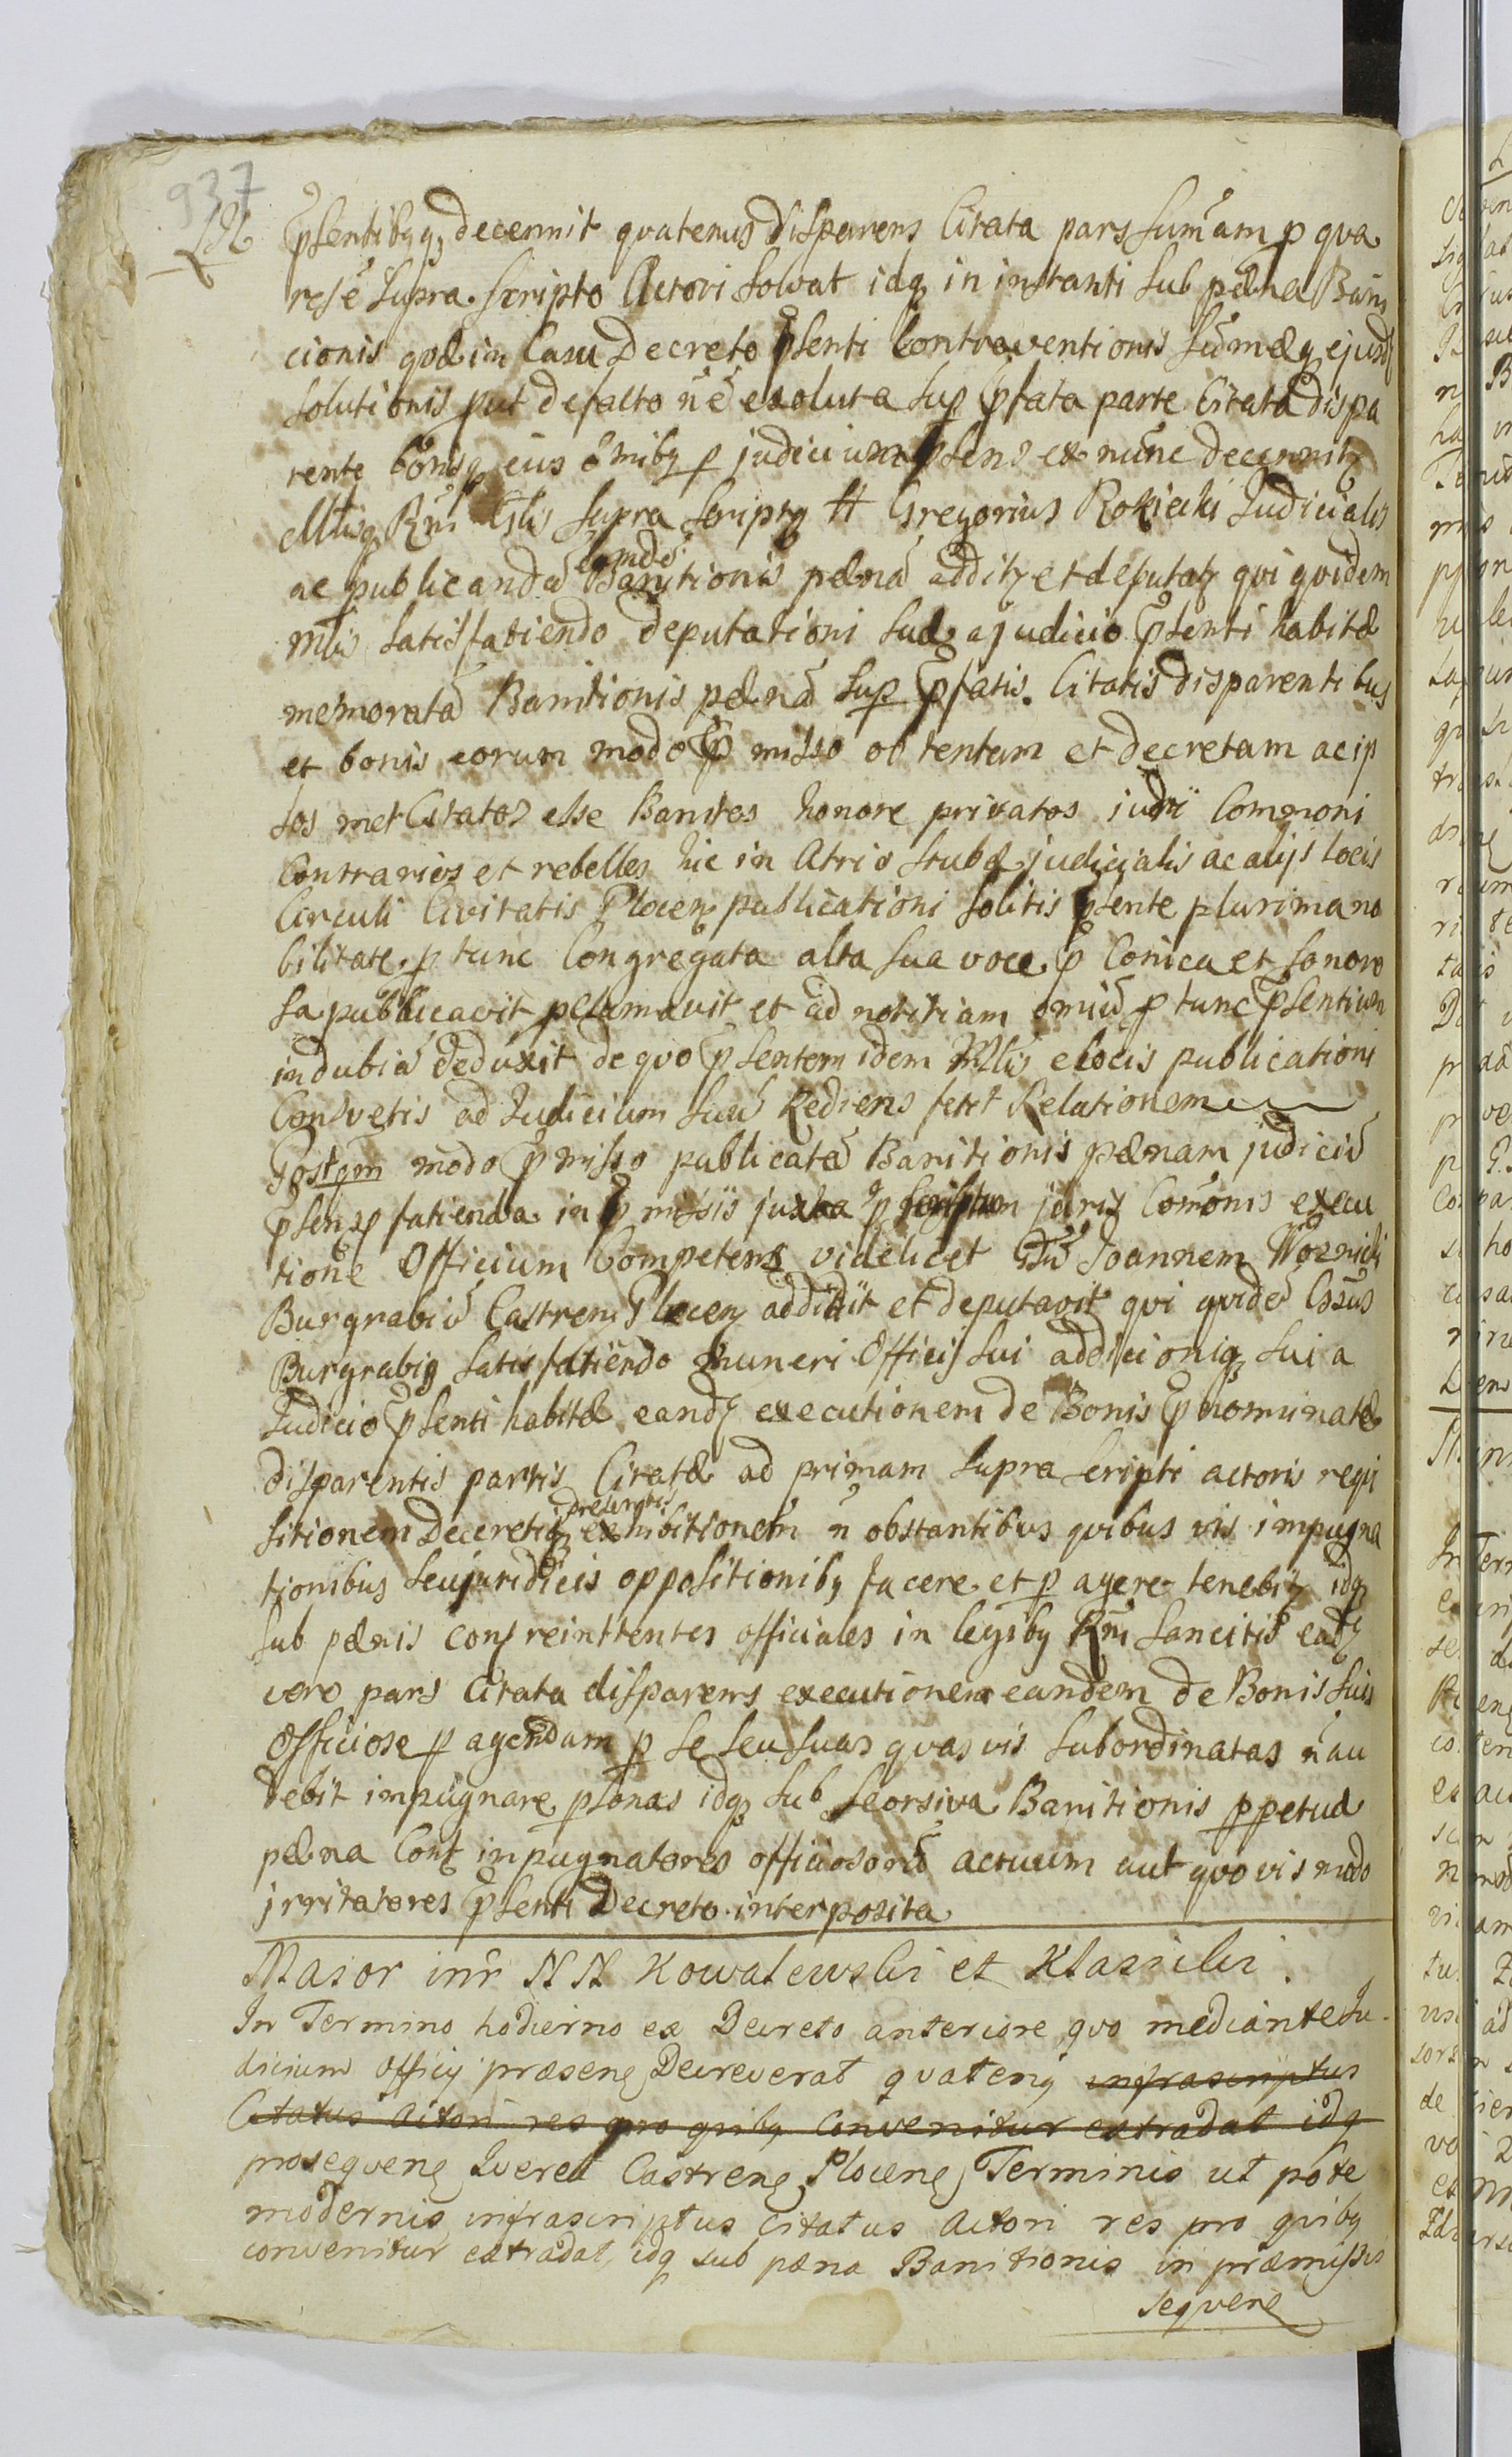 937
pSentibqq decernit qvatenus disparens Citata pars Sumam p qva
resē Supra Scripto Actori Solvat idq in instanti Sub pœna Bani
cionis qvæ in Casu Decreto pSenti Contraventionis Sumæq ejusd
Solutionis put defacto nē exoluta Sup pfata parte Citata dispa
rente bonisq eius omibq p judicium pSens ex nunc decernitz
Rni Glis Supra Scriptq H Gregorius Rokicki Judicialis
ac publicandā eamdē Banitionis pœnā additz et deputatz qvi qvidem
Mlis Satisfatiendo deputationi Suæ a judicio pSenti habitæ
memoratā Banitionis pœnā Sup pfatis Citatis disparentibus
et bonis eorum modo pmisso obtentam et decretam ac ip
Sos met Citatos esse Banitos honore privatos iuri Commoni
Contrarios et rebelles hic in Atrio Stubæ judicialis ac alijs locis
Circuli Civitatis Plocen publicationi Solitis pSente plurima no
bilitate p tunc Congregata alta Sua voce p Conica et Sonoro
Sa publicavit pclamavit et ad notitiam omiū p tunc pSentium
indubiā deduxit de qvo pSentem idem Mlis e locis publicationi
Consvetis ad Judicium Suū Rediens fecit Relationem
Postqm modo pmisso publicatā Banitionis pœnam judiciū
pSens p fatienda in pmissis juxta pScriptum juris Comonis execu
tione Officium Competens videlicet Joannem Woznicki
Burgrabiū Castrens Plocen addidit et deputavit qvi qvidē
Burgrabiq Satisfatiendo muneri Officij Sui addicioniq Sui a
Judicio pSenti habitæ eandz executionem de Bonis pnominatæ
disparentis partis Citatæ ad primam Supra Scripti actoris reqvi
sitionem Decretiq præsentis exhibitionem n obstantibus qvibus vis impugna
tionibus Seu juridicis oppositionibq facere et p agere tenebitz idq
Sub pœnis cont reinttentes officiales in legibq Rni Sancitis eadz
vero pars Citata disparens executionem eandem de Bonis Suis
Officiose p agendam p Se Seu Suas qvasvis Subordinatas n au
debit impugnare pSonas idq Sub Seorsiva Banitionis ppetuæ
pœna Cont inpugnatores officiosorū actuum aut qvovis modo
irritatores pSenti Decreto interposita
Masor inr NN Kowalewski et Klassicki
In Termino hodierno ex Decreto anteriore qvo mediante Ju-
dicium Officij præsens Decreverat qvatenq infrascriptus
Citatus Actori res pro qvibq convenitur extradat idq
proseqvens Qverel Castrens Plocens Terminis ut pote
modernis infrascriptus Citatus Actori res pro qvibq
convenitur extradat, idq sub pœna Banitionis in præmissis
seqvens